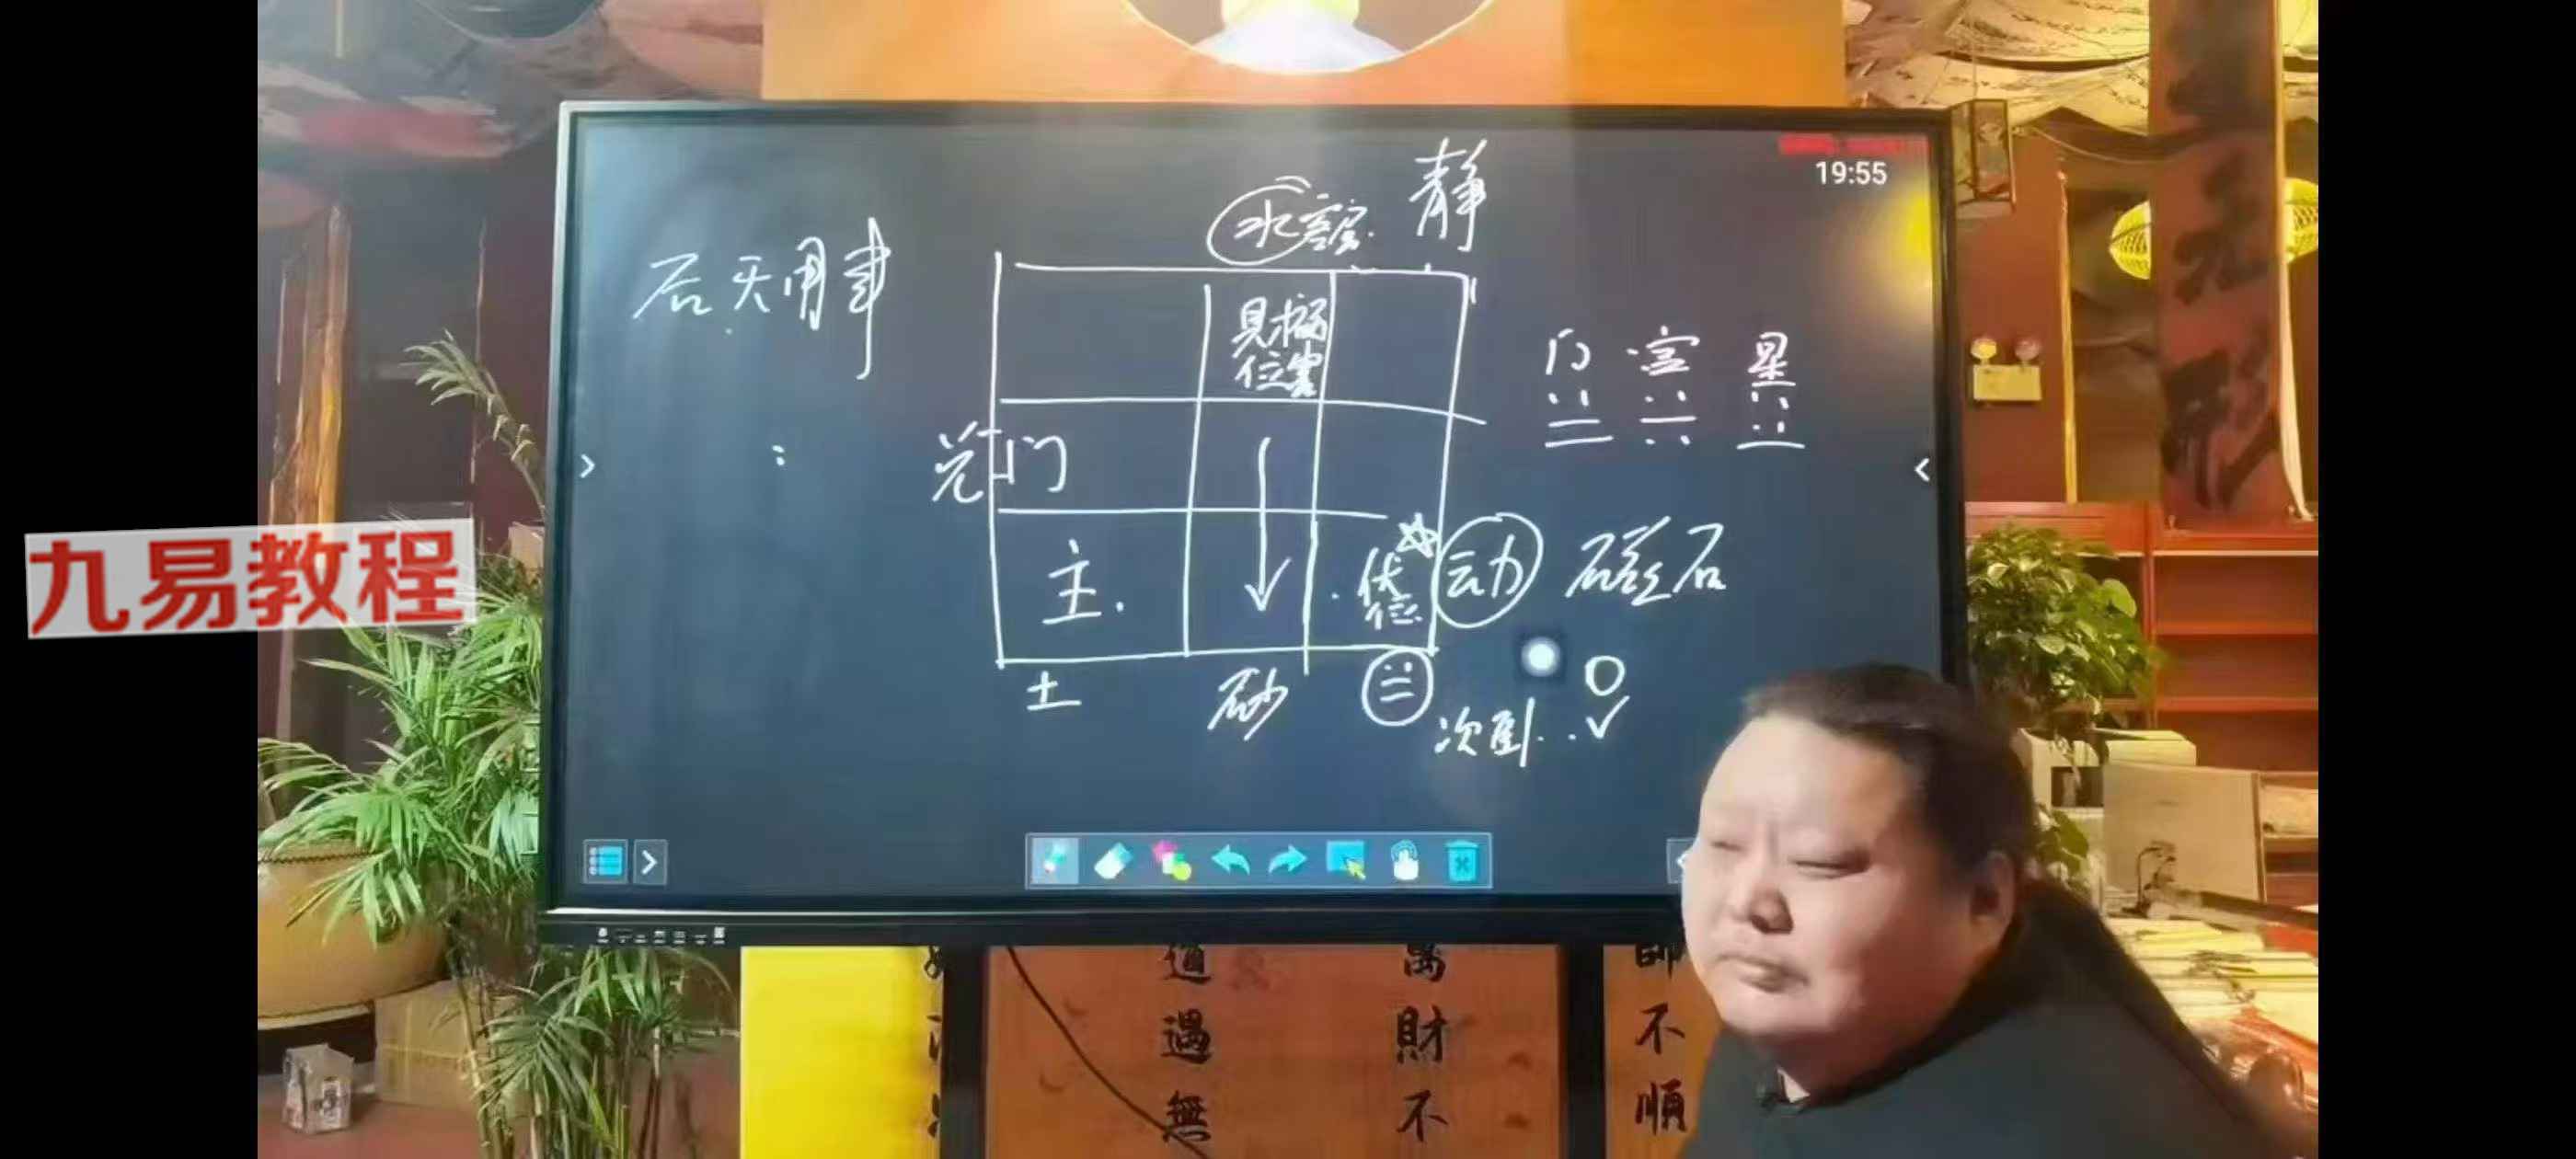 19:55
静
后天用事
见祸
位害
门 宫 星
兑门
主.
伏
位
动
磁石
土
砂
次卧..✓
九易教程
道 萬 師
遇 財 不
無 不 順